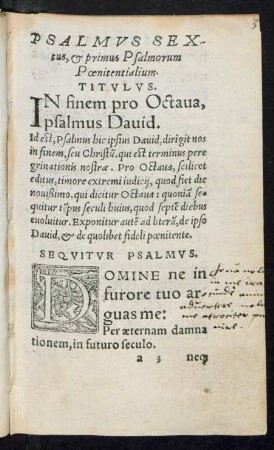 PSALMVS SEX-
tus, & primus Psalmorum
Pœnitentialium.
TITVLVS.
IN finem pro Octaua,
psalmus Dauid.
Id est, Psalmus hic ipsius Dauid, dirigit nos
in finem, seu Christū, qui est terminus pere
grinationis nostræ. Pro Octaua, scilicet
editus, timore extremi iudicij, quod fiet die
nouissimo, qui dicitur Octaua: quoniā se-
quitur tēpus seculi huius, quod septē diebus
euoluitur. Exponitur autē ad literā, de ipso
Dauid, & de quolibet fideli pœnitente.
SEQVITVR PSALMVS.
DOMINE ne in
furore tuo ar
guas me:
Per æternam damna
tionem, in futuro seculo.
a 3 neq;
me